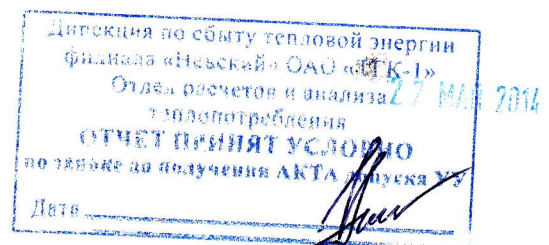 Дирекция по сбыту тепловой энергии
филиала «Невский» ОАО «ТГК-1»
Отдел расчетов и анализа
27 МАЯ 2014
теплопотребления
ОТЧЕТ ПРИНЯТ УСЛОВНО
по заявке до получения АКТА допуска УУ
Дата